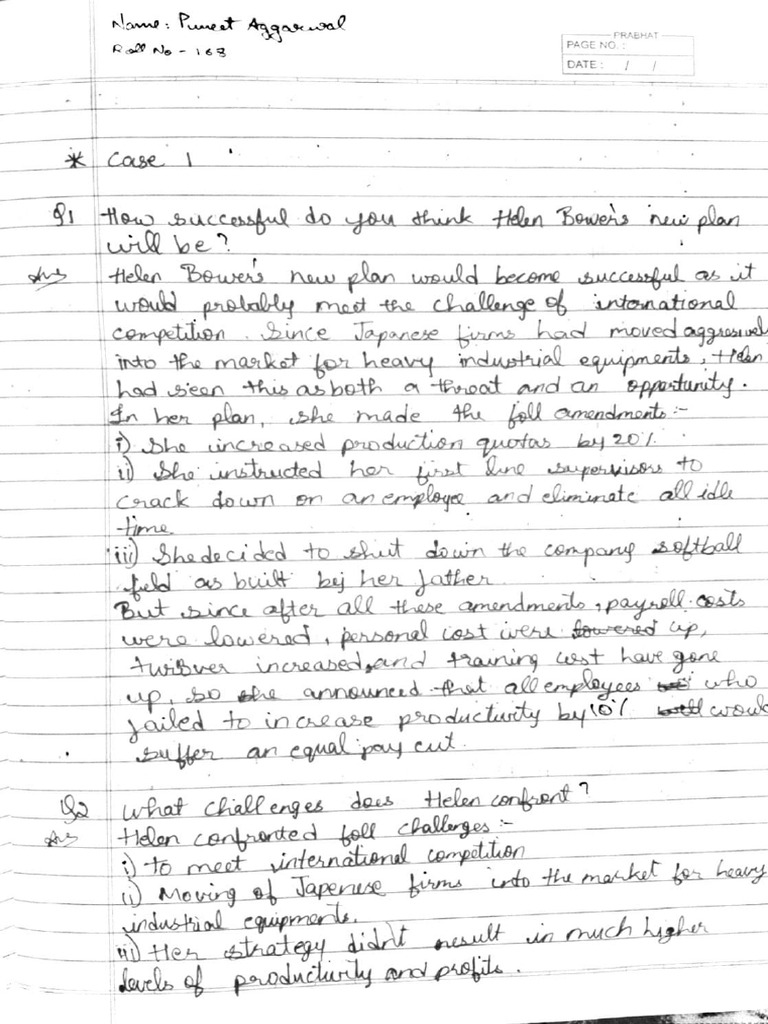 Name: Puneet Aggarwal
Roll No - 163
PRABHAT
PAGE NO. :
DATE : / /
* Case 1
Q1 How successful do you think Helen Bower's new plan
will be?
Ans Helen Bower's new plan would become successful as it
would probably meet the challenge of international
competition. Since Japanese firms had moved aggressively
into the market for heavy industrial equipments, Helen
had seen this as both a threat and an opportunity.
In her plan, she made the foll amendments :-
i) She increased production quotas by 20%.
ii) She instructed her first line supervisors to
crack down on an employee and eliminate all idle
time
iii) She decided to shut down the company softball
field as built by her father
But since after all these amendments, payroll costs
were lowered, personal cost were lowered up,
turnover increased, and training cost have gone
up, so she announced that all employees who
failed to increase productivity by 10% would
suffer an equal pay cut.
Q2 What challenges does Helen confront?
Ans Helen confronted foll challenges :-
i) to meet international competition
ii) Moving of Japenese firms into the market for heavy
industrial equipments.
iii) Her strategy didn't result in much higher
levels of productivity and profits.